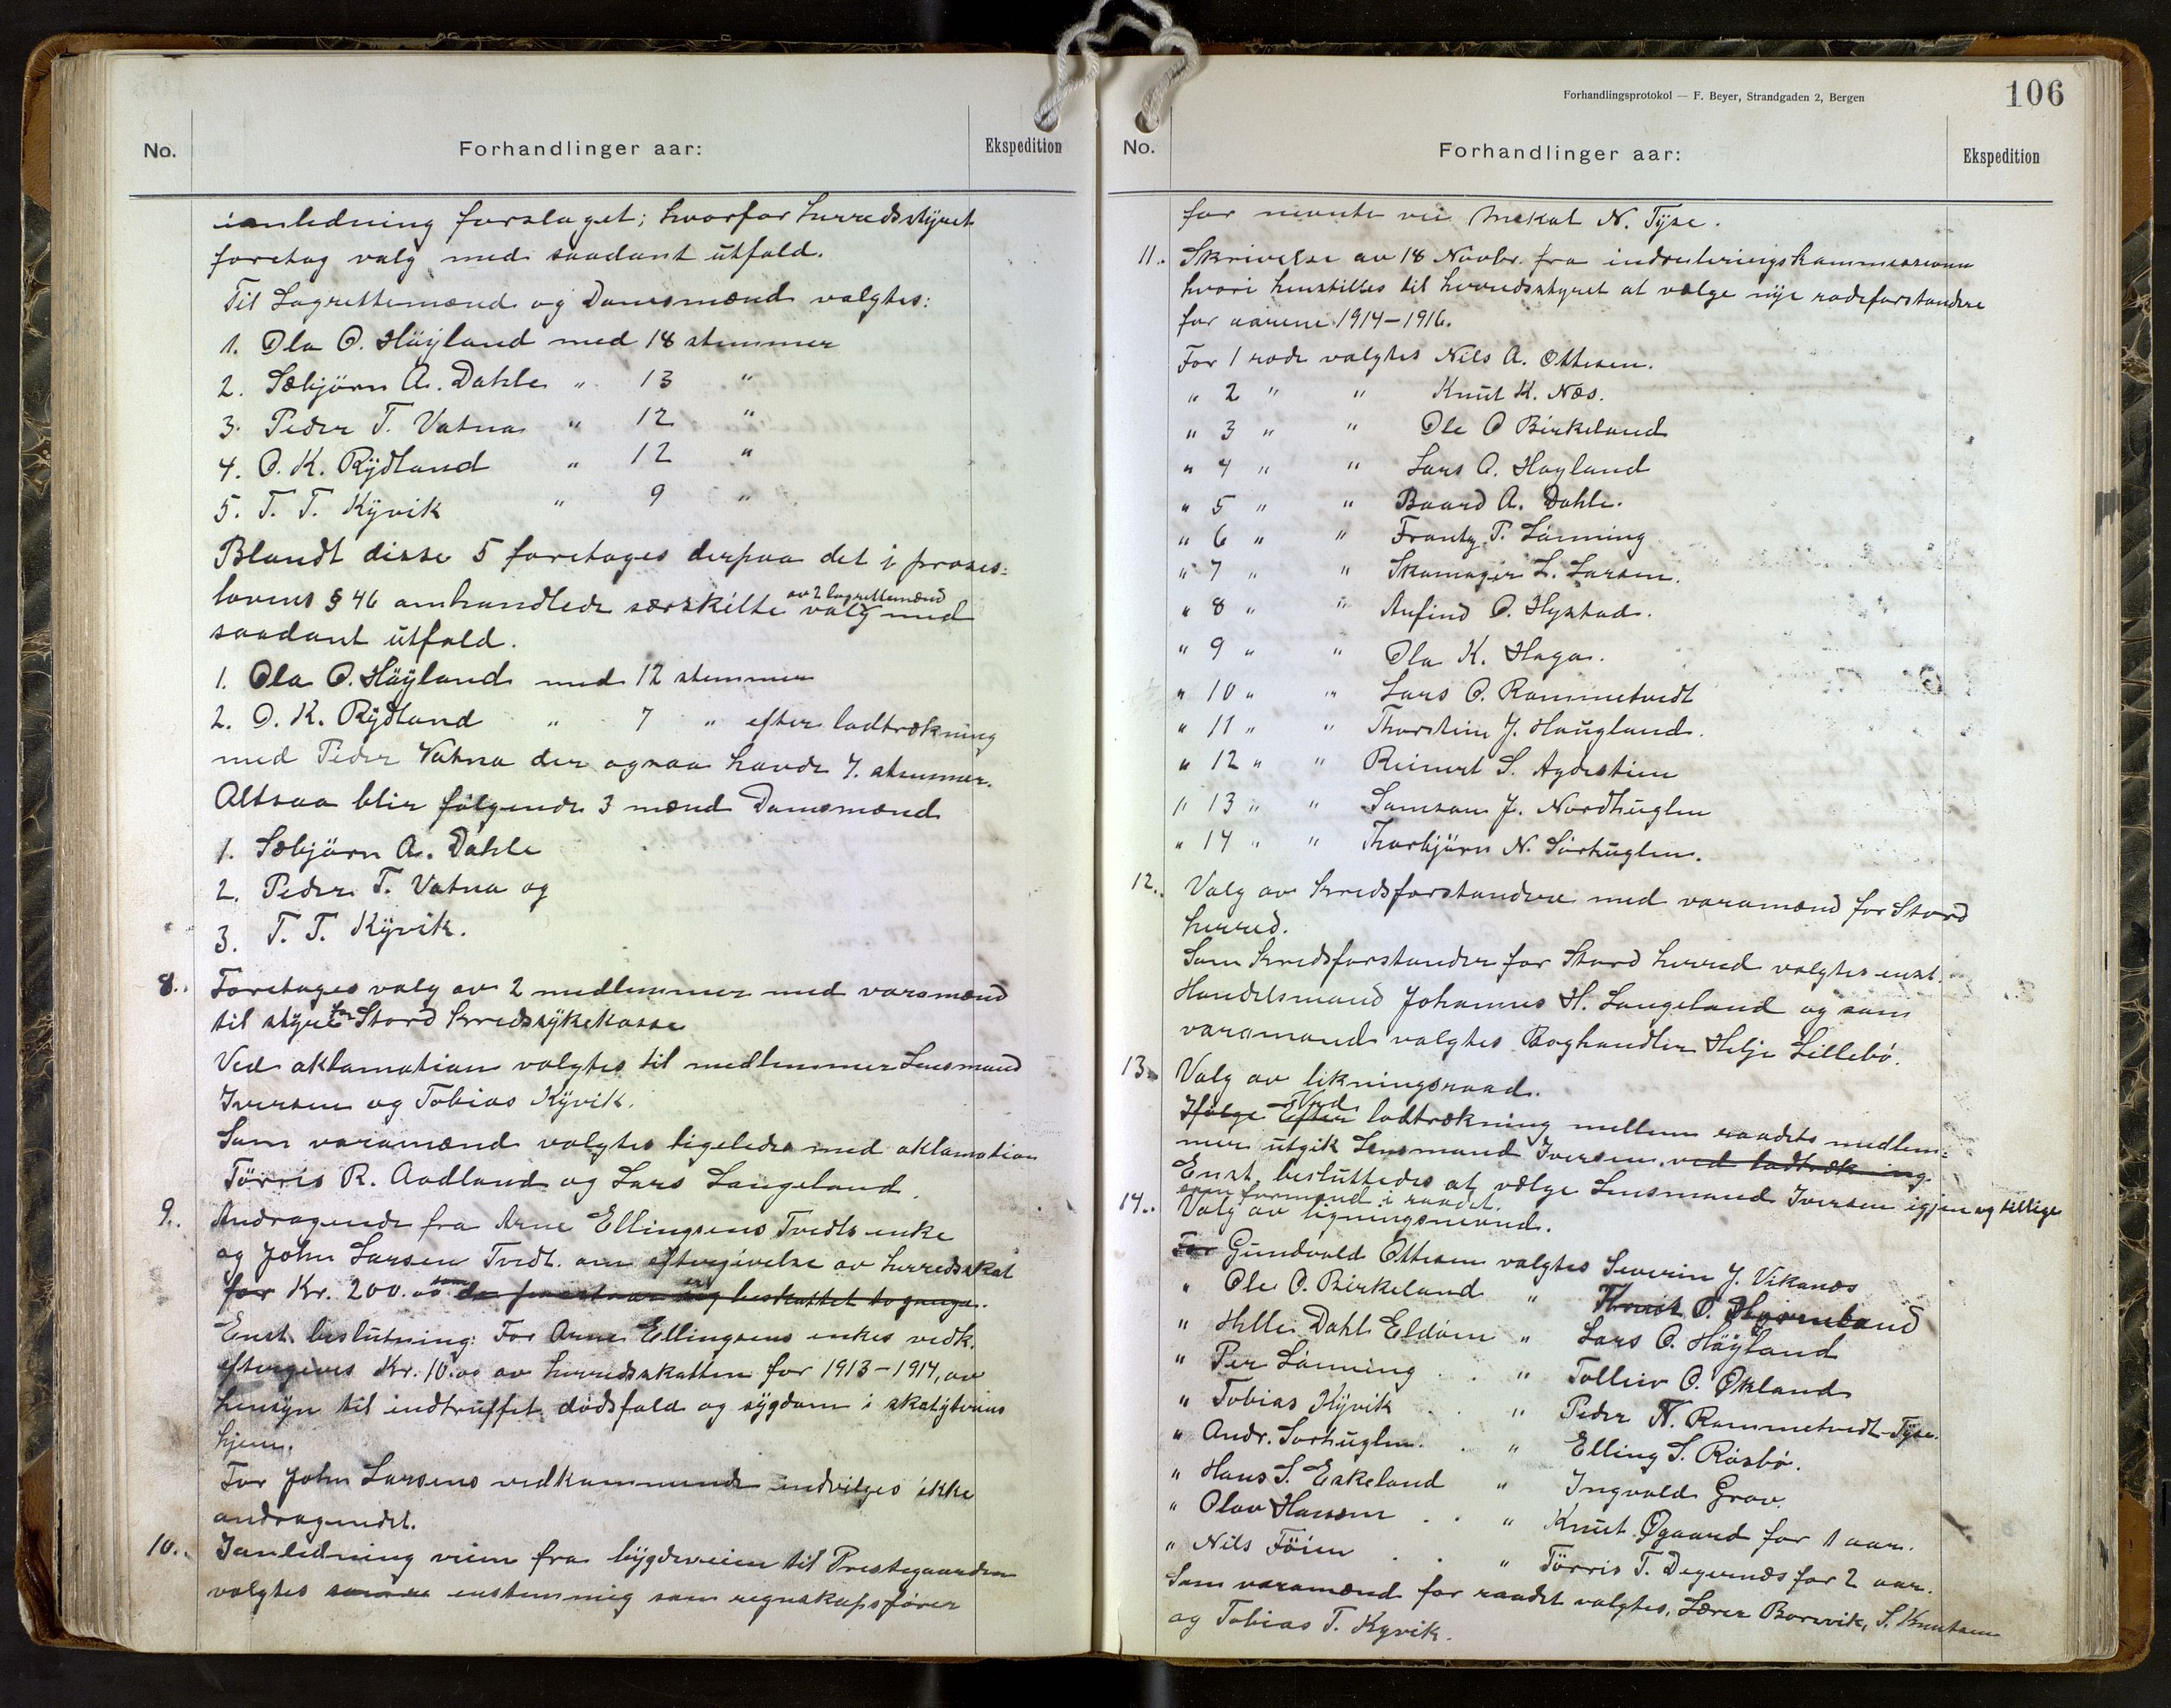 No.
Forhandlinger aar:
Ekspedition
ianledning forslaget; hvorfor herredsstyret
foretog valg med saadant utfald.
Til Lagrettemænd og Domsmænd valgtes:
1. Ola O. Høyland med 18 stemmer
2. Sæbjørn A. Dahle " 13 "
3. Peder T. Vatna " 12 "
4. O. K. Rydland " 12 "
5. T. T. Kyvik " 9 "
Blandt disse 5 foretages derpaa det i proses-
lovens § 46 omhandlede særskilte valg av 2 lagrettemænd med
saadant utfald.
1. Ola O. Høyland med 12 stemmer
2. O. K. Rydland " 7 " efter lodtrækning
med Peder Vatna der ogsaa havde 7. stemmer.
Altsaa blir følgende 3 mænd Domsmænd
1. Sæbjørn A. Dahle
2. Peder T. Vatna og
3. T. T. Kyvik.
8. Foretages valg av 2 medlemmer med varamænd
til styret for Stord kredssykekasse
Ved aklamation valgtes til medlemmer Lensmand
Iversen og Tobias Kyvik.
Som varamænd valgtes ligeledes med aklamation
Tørris R. Aadland og Lars Langeland.
9. Andragende fra Arne Ellingsens Tvedts enke
og John Larsen Tvedt. om eftergivelse av herredsskat
for Kr. 200.00 som de beskattet to gange.
Enst. beslutning: For Arne Ellingsens enkes vedk.
eftergives Kr. 10.00 av herredsskatten for 1913-1914, av
hensyn til indtruffet dødsfald og sygdom i skatyterens
hjem.
For John Larsens vedkommende indvilges ikke
andragendet.
10. Ianledning veien fra bygdeveien til Prestegaarden
valgtes enstemmig som regnskapsfører
Forhandlingsprotokol — F. Beyer, Strandgaden 2, Bergen
106
No.
Forhandlinger aar:
Ekspedition
for nevnte vei Mekal N. Tyse.
11. Skrivelse av 18 Novbr. fra indrulleringskommissionen
hvori henstilles til herredsstyret at vælge nye rodeforstandere
for aarene 1914-1916.
For 1 rode valgtes Nils A. Ottesen.
" 2 " " Knut K. Næs.
" 3 " " Ole O Birkeland
" 4 " " Lars O. Høyland
" 5 " " Baard A. Dahle.
" 6 " " Frantz T. Lønning
" 7 " " Skomager L. Larsen.
" 8 " " Anfind O. Hystad.
" 9 " " Ola K. Haga.
" 10 " " Lars O. Rommetvedt
" 11 " " Thorstein J. Haugland.
" 12 " " Reinert S. Agdestien
" 13 " " Samson J. Nordhuglen
" 14 " " Thorbjørn N. Sørhuglen.
12. Valg av kredsforstandere med varamænd for Stord
herred.
Som kredsforstander for Stord herred valgtes enst.
Handelsmand Johannes H. Langeland og som
varamand valgtes Boghandler Helje Lillebø.
13. Valg av likningsraad.
Ifølge Efter Ved lodtrækning mellem raadets medlem-
mer utgik Lensmand Iversen. ved lodtrækning
Enst. besluttedes at vælge Lensmand Iversen igjen og tillige
som formand i raadet.
14. Valg av ligningsnevnd.
For Gundvald Ottesen valgtes Severin J. Vikanæs
" Ole O. Birkeland " Knut O. Hjorneland
" Helle Dahl Eldøen " Lars O. Høyland
" Per Lønning . . " Tolleiv O. Økland
" Tobias Kyvik . . " Peder N. Rommetvedt-Tyse.
" Andr. Sørhuglen . . " Elling S. Røsbø.
" Hans S. Eskeland " Ingvald Grov.
" Olav Hansen . . " Knut Øgaard for 1 aar.
" Nils Føien . . " Tørris T. Degernæs for 2 aar.
Som varamænd for raadet valgtes, Lærer Borsvik, S. Knutsen
og Tobias T. Kyvik.